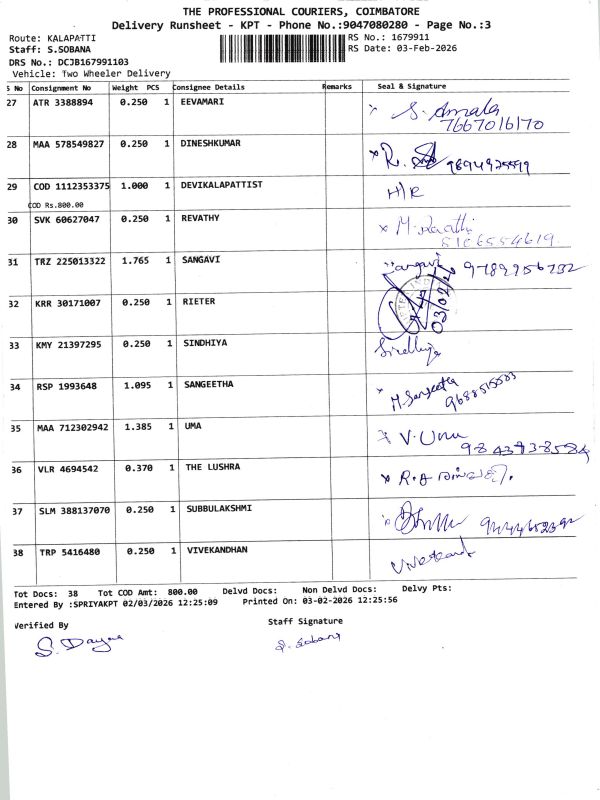 THE PROFESSIONAL COURIERS, COIMBATORE
Delivery Runsheet - KPT - Phone No.:9047080280 - Page No.:3
Route: KALAPATTI
RS No.: 1679911
Staff: S.SOBANA
RS Date: 03-Feb-2026
DRS No.: DCJB167991103
Vehicle: Two Wheeler Delivery
S No Consignment No Weight PCS Consignee Details Remarks Seal & Signature
27 ATR 3388894 0.250 1 EEVAMARI S. Amala
7667016170
28 MAA 578549827 0.250 1 DINESHKUMAR R.
29 COD 1112353375 1.000 1 DEVIKALAPATTIST H/R
COD Rs.800.00
30 SVK 60627047 0.250 1 REVATHY M. Revathi
31 TRZ 225013322 1.765 1 SANGAVI Sangavi 9789956732
32 KRR 30171007 0.250 1 RIETER 03/02/26
33 KMY 21397295 0.250 1 SINDHIYA Sindhiya
34 RSP 1993648 1.095 1 SANGEETHA M. Sangeetha
35 MAA 712302942 1.385 1 UMA V. Uma
36 VLR 4694542 0.370 1 THE LUSHRA
37 SLM 388137070 0.250 1 SUBBULAKSHMI
38 TRP 5416480 0.250 1 VIVEKANDHAN
Tot Docs: 38 Tot COD Amt: 800.00 Delvd Docs: Non Delvd Docs: Delvy Pts:
Entered By :SPRIYAKPT 02/03/2026 12:25:09 Printed On: 03-02-2026 12:25:56
Verified By
Staff Signature
S. Dayana
S. Sobana